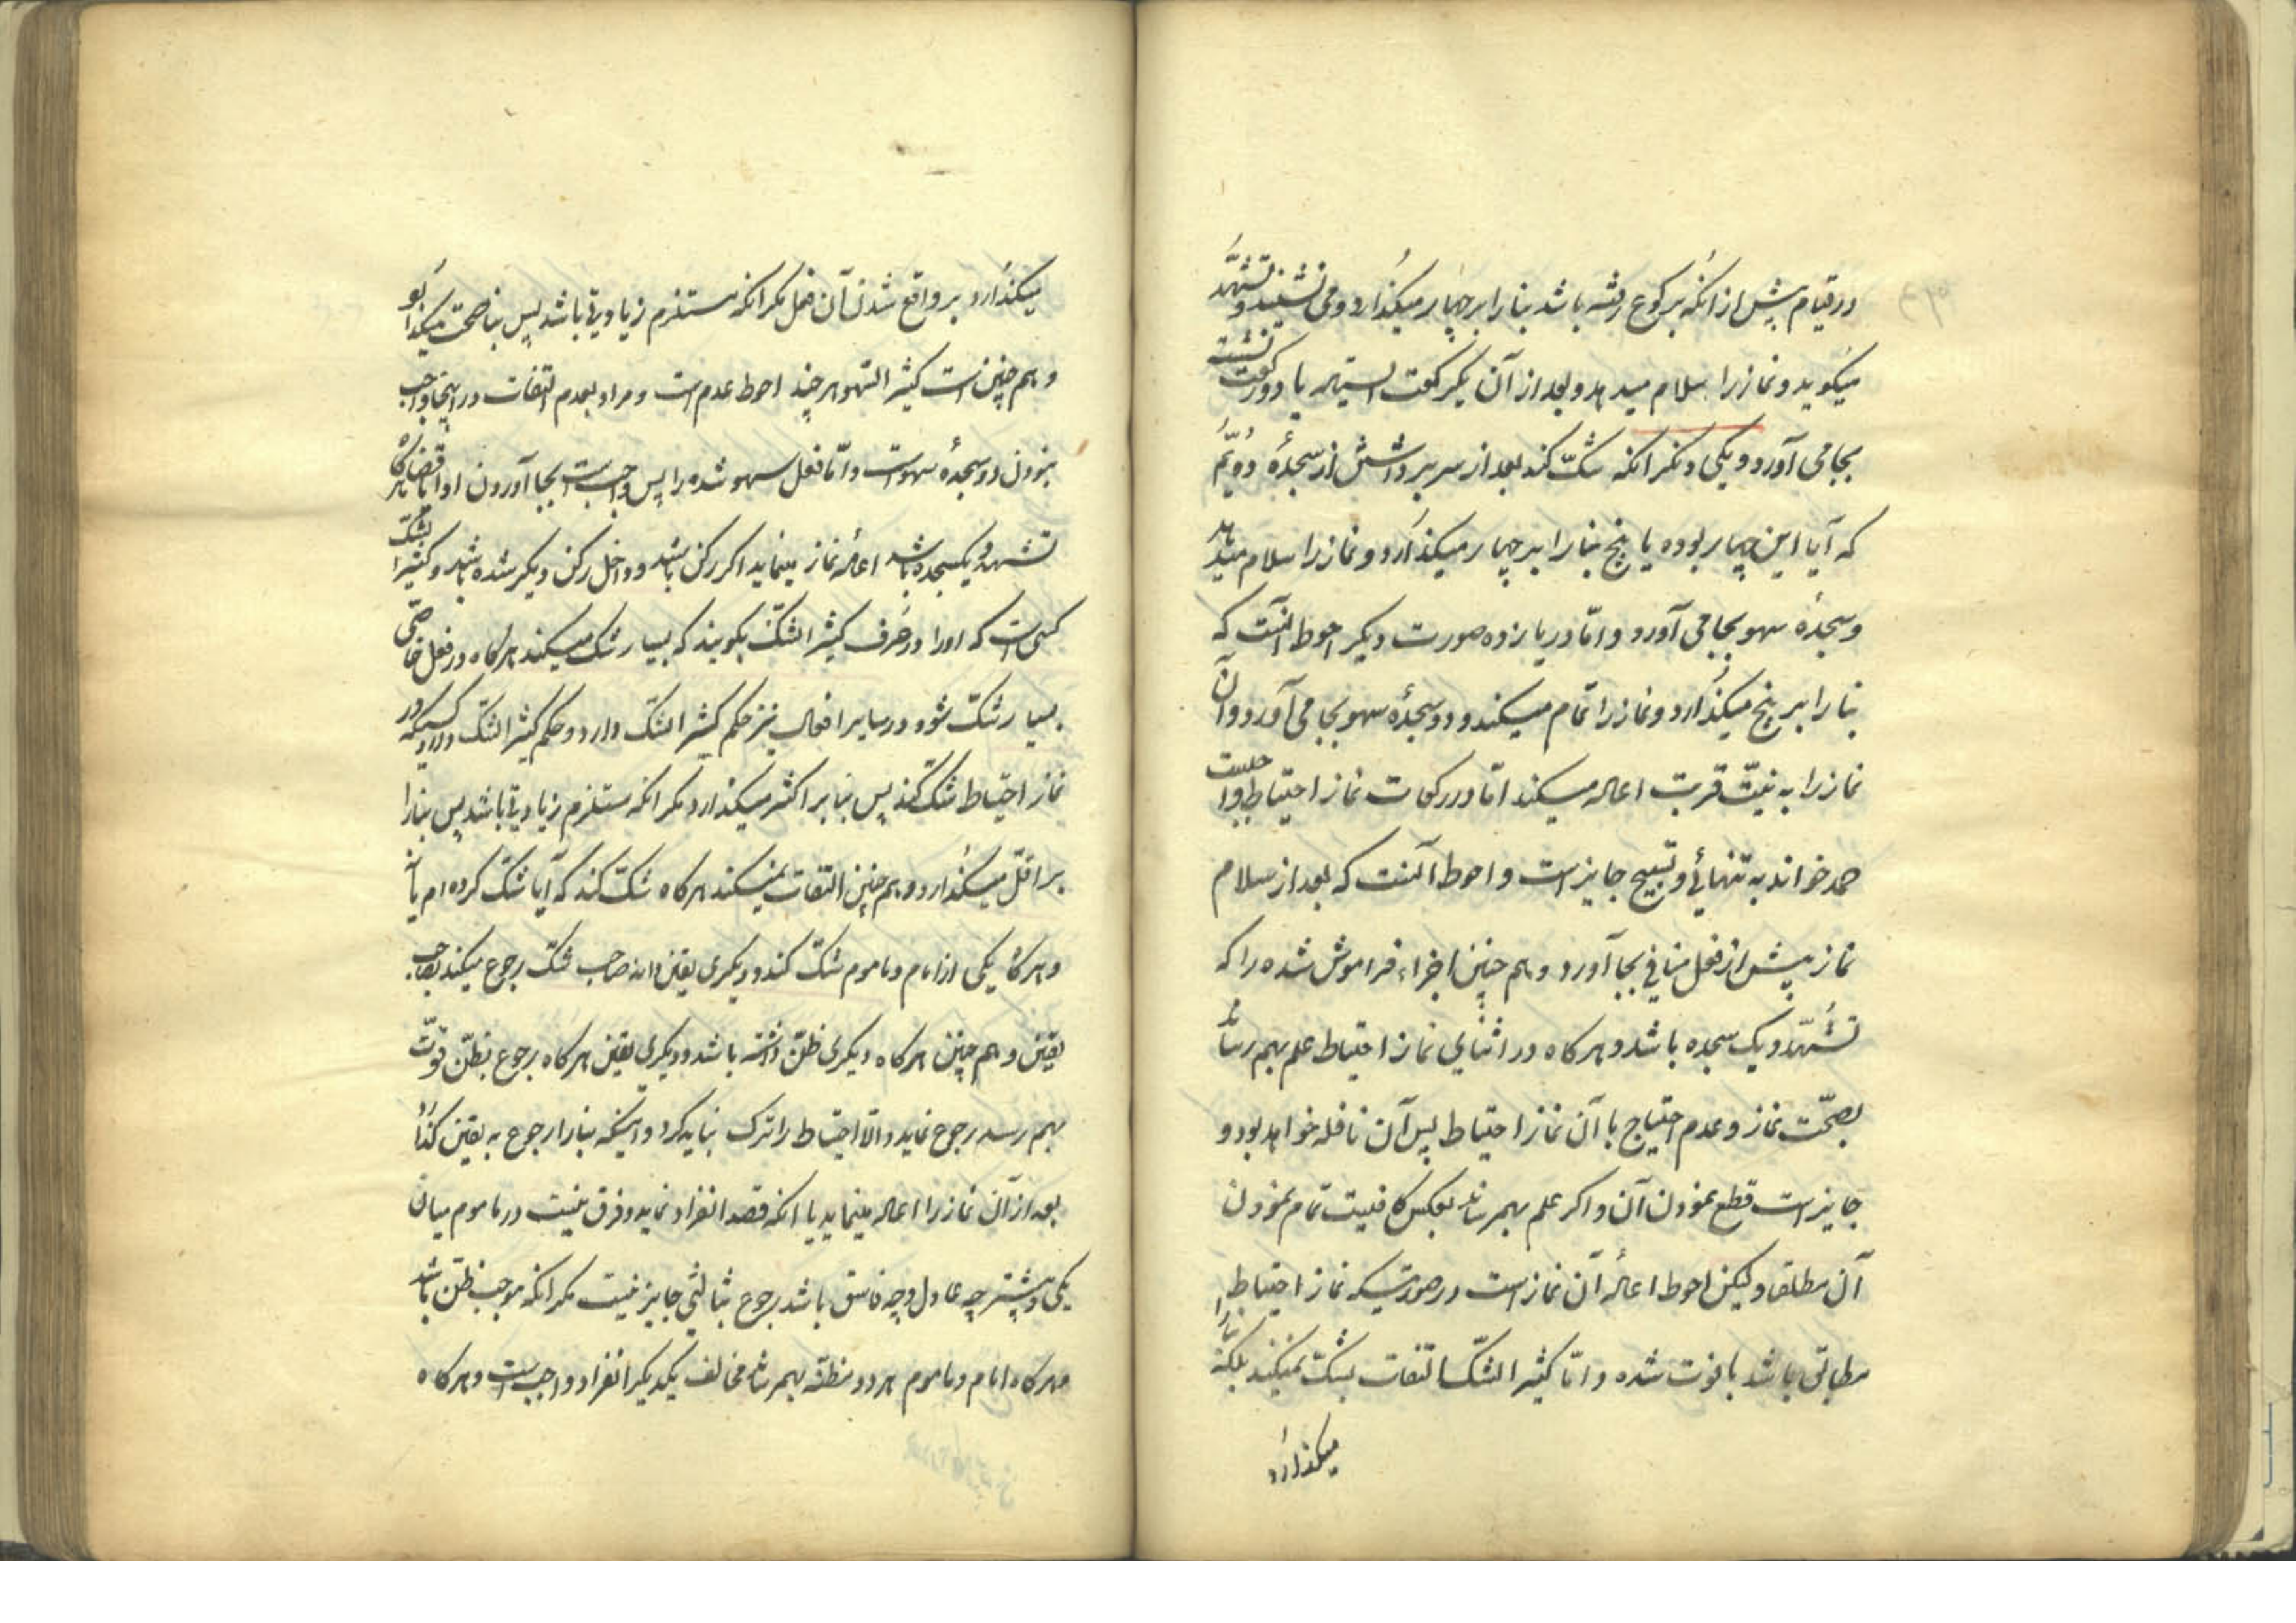 در قیام پیش از آنکه برکوع رفته باشد بنا را بر چهار میگذارد و می نشیند و تشهد
میگوید و نماز را سلام میدهد و بعد از آن یکرکعت ایستاده یا دو رکعت نشسته
بجا می آورد و یکی دیگر آنکه شک کند بعد از سر برداشتن از سجدهٔ دویّم
که آیا این چهار بوده یا پنج بنا را بر چهار میگذارد و نماز را سلام میدهد
و سجدهٔ سهو بجا می آورد و امّا در یازده صورت دیگر احوط آنست که
بنا را بر پنج میگذارد و نماز را تمام میکند و دو سجدهٔ سهو بجا می آورد و آن
نماز را به نیّت قربت اعاده میکند امّا در رکعات نماز احتیاط واجبست
حمد خواند به تنهائی و تسبیح جایز است و احوط آنست که بعد از سلام
نماز پیش از فعل منافی بجا آورد و هم چنین اجزاء فراموش شده را که
تشهّد و یک سجده باشد و هرکاه در اثنای نماز احتیاط علم بهم رساند
بصحّت نماز و عدم احتیاج با آن نماز احتیاط پس آن نافله خواهد بود و
جایز است قطع نمودن آن و اکر علم بهم رساند بعکس کافیست تمام نمودن
آن مطلقا ولیکن احوط اعادهٔ آن نماز است در صورتیکه نماز احتیاط
مطابق باشد با فوت شده و امّا کثیر الشکّ التفات بشک نمیکند بلکه بنا را
میکذارد
میکذارد بر واقع شدن آن فعل مکر آنکه مستلزم زیادتی باشد پس بنا بر صحت میکذارد
و هم چنین است کثیر السّهو هر چند احوط عدمست و مراد بعدم التفات در اینجا واجب
نبودن دو سجدهٔ سهوست و امّا فعل سهو شده را پس واجبست بجا آوردن ادا یا قضا
تشهد و یکسجده باشد اعادهٔ نماز مینماید اکر رکن باشد و داخل رکن دیکر شده باشد و کثیر الشکّ
کسی است که او را در عُرف کثیر الشکّ بکویند که بسیار شک میکند هرکاه در فعل خاصّی
بسیار شکّ شود در سایر افعال نیز حکم کثیر الشکّ دارد و حکم کثیر الشک دارد کسیکه در
نماز احتیاط شک کند پس بنا بر اکثر میکذارد مکر آنکه مستلزم زیادتی باشد پس بنا را
بر اقلّ میکذارد و هم چنین التفات نمیکند هرکاه شکّ کند که آیا شکّ کرده ام یا نه
و هرکاه یکی از امام و ماموم شکّ کند و دیکری یقین داند صاحب شک رجوع میکند بصاحب
یقین و هم چنین هرکاه دیکری ظنّ داشته باشد و دیکری یقین هرکاه رجوع بظنّ قوّت
بهم رسد رجوع نماید والّا احتیاط را ترک نباید کرد و اینکه بنا را رجوع به یقین کذارد
بعد از آن نماز را اعاده مینماید یا آنکه قصد انفراد نماید و فرق نیست در ماموم میان
یکی و بیشتر چه عادل و چه فاسق باشد رجوع بثالثی جایز نیست مکر آنکه موجب ظنّ باشد
هرکاه امام و ماموم هر دو مظنّه بهم رساند مخالف یکدیکر انفراد واجبست و هرکاه